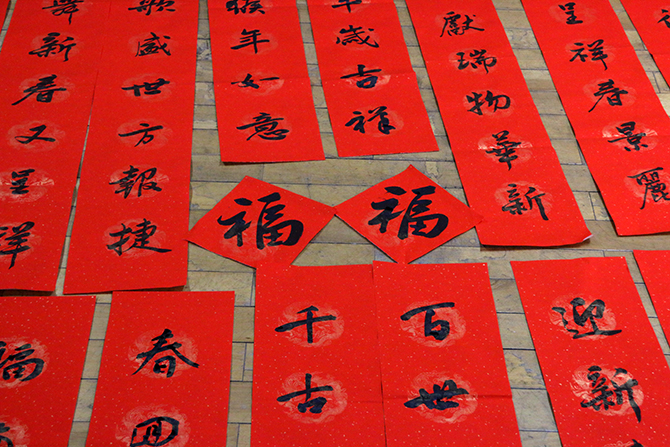 舞新春又呈祥
歌盛世方報捷
猴年如意
歲吉祥
獻瑞物華新
呈祥春景麗
福
福
福
春回
千古
百世
迎新